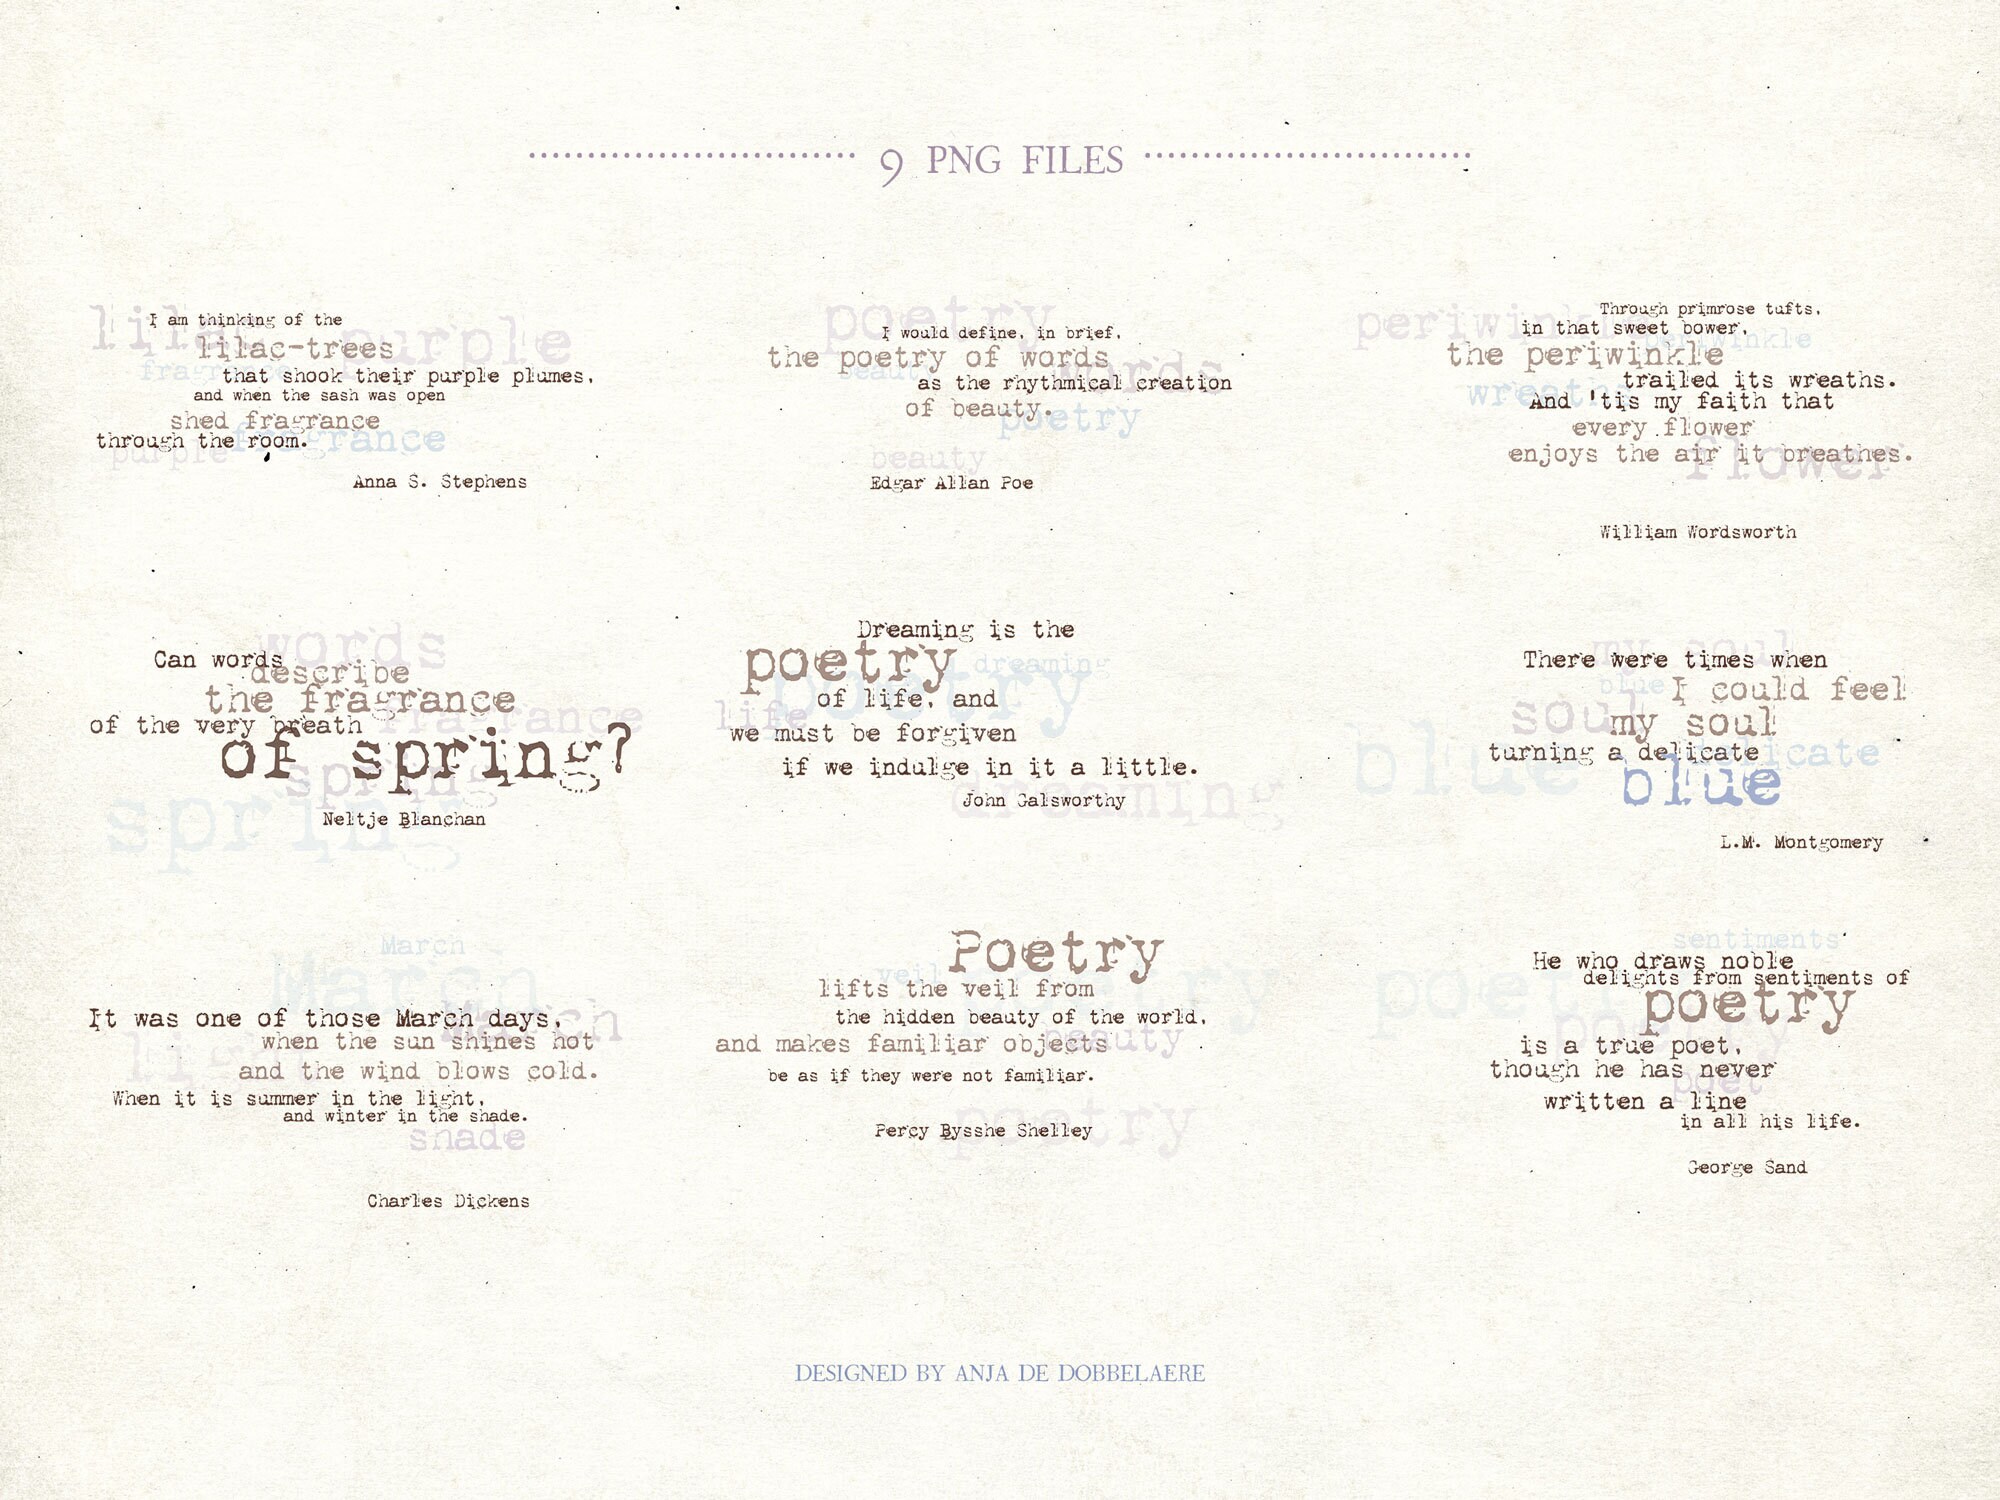 9 PNG FILES
lilac purple
I am thinking of the
lilac-trees
fragrance
that shook their purple plumes,
and when the sash was open
shed fragrance
through the room.
fragrance
purple
Anna S. Stephens
poetry
I would define, in brief,
the poetry of words
beauty words
as the rhythmical creation
of beauty.
poetry
beauty
Edgar Allan Poe
periwinkle
Through primrose tufts,
in that sweet bower,
periwinkle
the periwinkle
trailed its wreaths.
wreaths
And 'tis my faith that
every flower
enjoys the air it breathes.
flower
William Wordsworth
words
Can words
describe
the fragrance
fragrance
of the very breath
of spring?
spring
spring
Neltje Blanchan
Dreaming is the
poetry
dreaming
poetry
of life, and
life
we must be forgiven
if we indulge in it a little.
dreaming
John Galsworthy
my soul
There were times when
blue
I could feel
soul
my soul
turning a delicate
delicate
blue
blue
L.M. Montgomery
March
March
It was one of those March days,
March
when the sun shines hot
light
and the wind blows cold.
When it is summer in the light,
and winter in the shade.
shade
Charles Dickens
Poetry
veil
poetry
lifts the veil from
the hidden beauty of the world,
beauty
and makes familiar objects
be as if they were not familiar.
poetry
Percy Bysshe Shelley
sentiments
He who draws noble
delights from sentiments of
poetry
poetry
poetry
is a true poet,
though he has never
poet
written a line
in all his life.
George Sand
DESIGNED BY ANJA DE DOBBELAERE